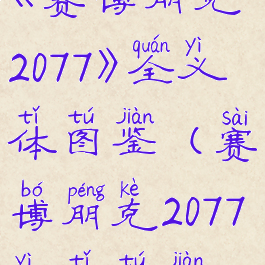 《赛博朋克
quán yì
2077》全义
tǐ tú jiàn sài
体图鉴（赛
bó péng kè
博朋克2077
yì tǐ tú jiàn